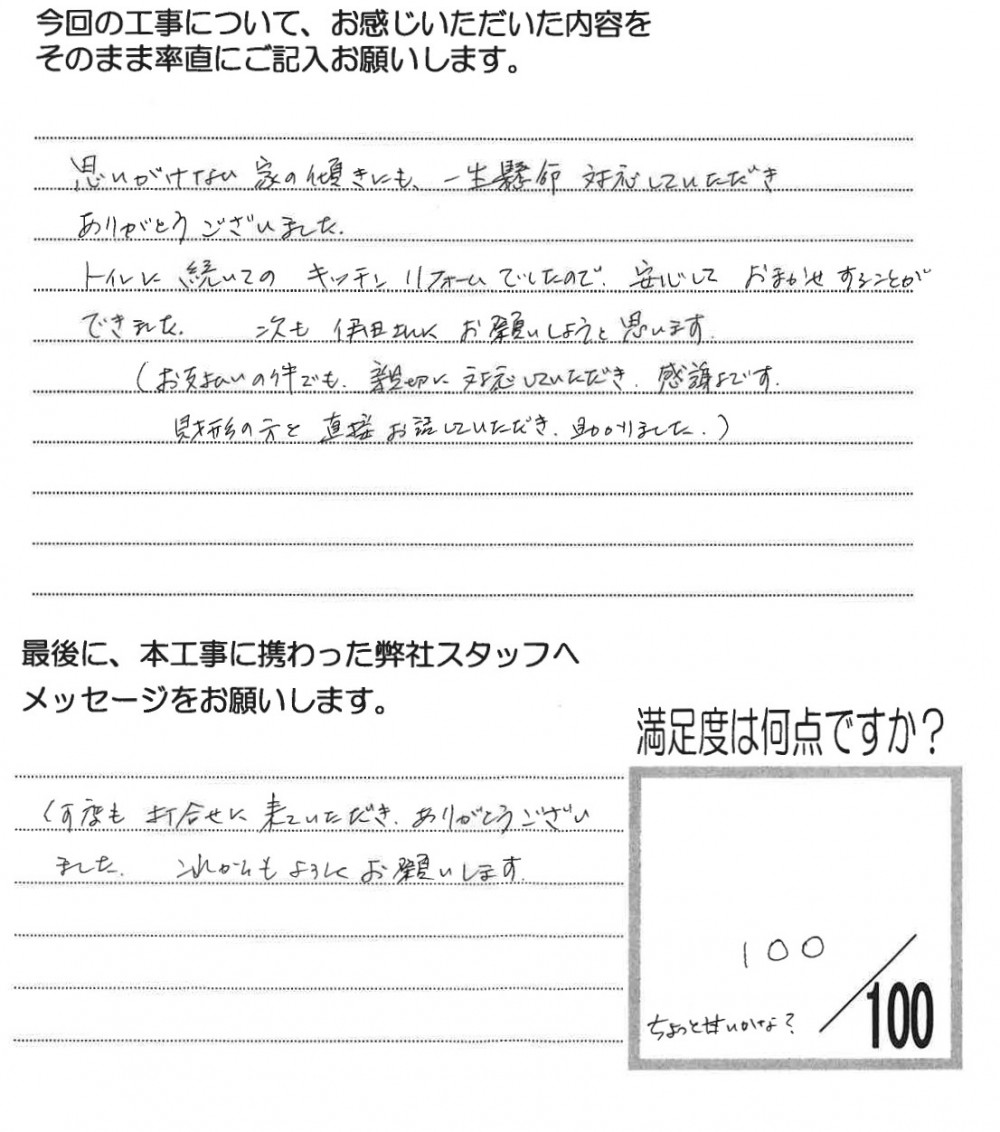 今回の工事について、お感じいただいた内容を
そのまま率直にご記入お願いします。
思いがけない 家の傾きにも、一生懸命 対応していただき
ありがとうございました。
トイレに続いての キッチンリフォームでしたので、安心して おまかせすることが
できました。 次も 伊田さんに お願いしようと思います。
(お支払いの件でも、親切に対応していただき、感謝です。
財形の方と 直接お話していただき、助かりました。)
最後に、本工事に携わった弊社スタッフへ
メッセージをお願いします。
満足度は何点ですか?
何度も 打合せに 来ていただき、ありがとうござい
ました。 これからもよろしくお願いします。
100
ちょっと甘いかな?
/100